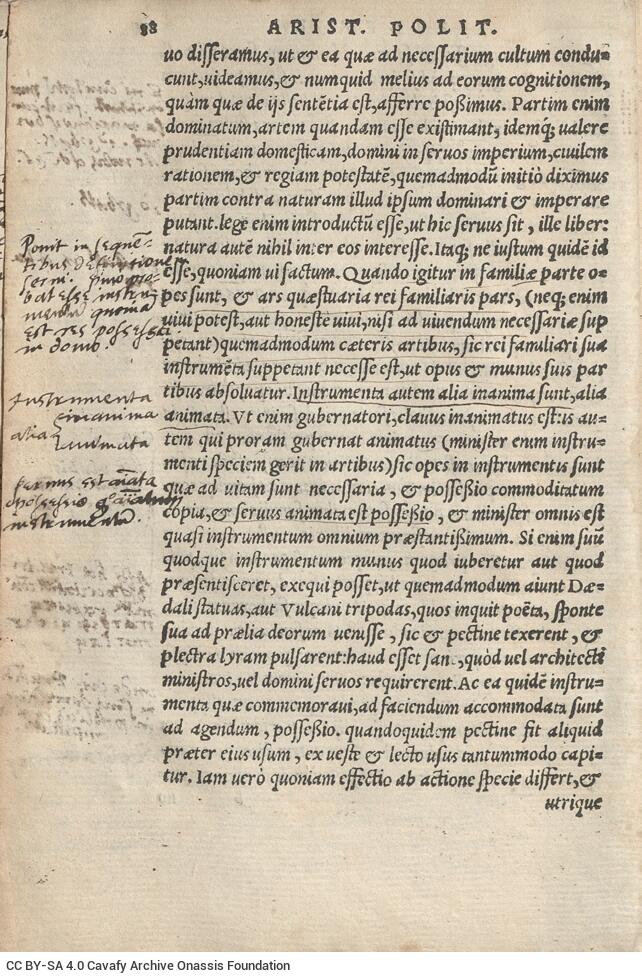 88 ARIST. POLIT.
uo disseramus, ut & ea quæ ad necessarium cultum condu=
cunt, uideamus, & numquid melius ad eorum cognitionem,
quàm quæ de ijs sentẽtia est, afferre poßimus. Partim enim
dominatum, artem quandam esse existimant, idemq́; ualere
prudentiam domesticam, domini in seruos imperium, ciuilem
rationem, & regiam potestatẽ, quemadmodũ initiò diximus
partim contra naturam illud ipsum dominari & imperare
putant. lege enim introductũ esse, ut hic seruus sit, ille liber:
natura autẽ nihil inter eos interesse. Itaq; ne iustum quidẽ id
esse, quoniam ui factum. Quando igitur in familiæ parte o=
pes sunt, & ars quæstuaria rei familiaris pars, (neq; enim
uiui potest, aut honeste uiui, nisi ad uiuendum necessariæ sup
petant) quemadmodum cæteris artibus, sic rei familiari sua
instrumẽta suppetant necesse est, ut opus & munus suis par
tibus absoluatur. Instrumenta autem alia inanima sunt, alia
animata. Vt enim gubernatori, clauus inanimatus est: is au=
tem qui proram gubernat animatus (minister enim instru=
menti speciem gerit in artibus) sic opes in instrumentis sunt
quæ ad uitam sunt necessaria, & possesio commoditatum
copia, & seruus animata est possesio, & minister omnis est
quasi instrumentum omnium præstantißimum. Si enim suũ
quodque instrumentum munus quod iuberetur aut quod
præsentisceret, exequi posset, ut quemadmodum aiunt Dæ=
dali statuas, aut Vulcani tripodas, quos inquit poëta, sponte
sua ad prælia deorum uenisse, sic & pectine texerent, &
plectra lyram pulsarent: haud esset san , quòd uel architecti
ministros, uel domini seruos requirerent. Ac ea quidẽ instru=
menta quæ commemoraui, ad faciendum accommodata sunt
ad agendum, possesio. quandoquidem pectine fit aliquid
præter eius usum, ex ueste & lecto usus tantummodo capi=
tur. Iam uerò quoniam effectio ab actione specie differt, &
utrique
Ponit in sequẽ=
tibus definitionem
serui.
bat esse instru
mentũ quoniã
est res possessa
in domo.
Instrumenta
inanima
alia
animata
seruus est aĩata
possessio
instrumentũ.
CC BY-SA 4.0 Cavafy Archive Onassis Foundation